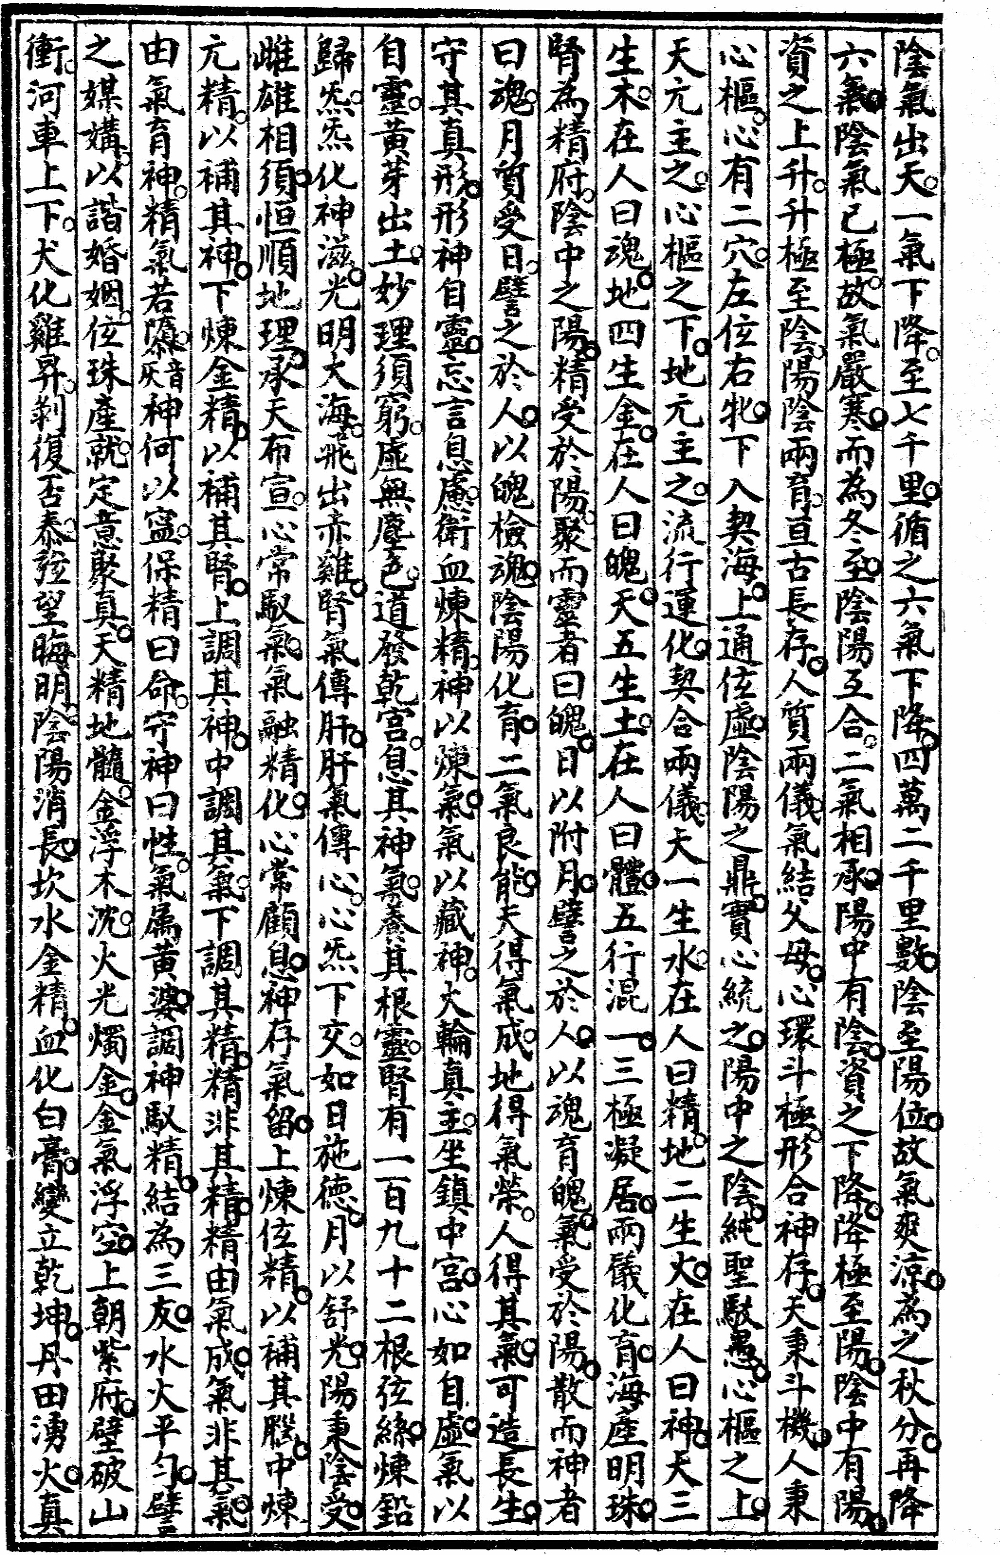 陰氣出天一氣下降至七千里循之六氣下降四萬二千里數陰至陽位故氣爽涼為之秋分再降
六氣陰氣已極故氣嚴寒而為冬至陰陽互合二氣相承陽中有陰資之下降降極至陽陰中有陽
資之上升升極至陰陽陰兩育亘古長存人質兩儀氣結父母心環斗極形合神存天秉斗機人秉
心樞心有二穴左位右牝下入契海上通位虛陰陽之鼎實心統之陽中之陰純聖駁愚心樞之上
天元主之心樞之下地元主之流行運化契合兩儀天一生水在人曰精地二生火在人曰神天三
生木在人曰魂地四生金在人曰魄天五生土在人曰體五行混一三極凝居兩儀化育海產明珠
腎為精府陰中之陽精受於陽聚而靈者曰魄日以附月譬之於人以魂育魄氣受於陽散而神者
曰魂月質受日譬之於人以魄檢魂陰陽化育二氣良能天得氣成地得氣榮人得其氣可造長生
守其真形形神自靈忘言息慮衛血煉精神以煉氣氣以藏神大輪真王坐鎮中宮心如自虛氣以
自靈黃芽出土妙理須窮虛無塵色道發乾宮息其神氣養其根靈腎有一百九十二根位絲煉鉛
歸炁炁化神滋光明大海飛出赤雞腎氣傳肝肝氣傳心心炁下交如日施德月以舒光陽秉陰受
雌雄相須恒順地理承天布宣心常馭氣氣融精化心常顧息神存氣留上煉位精以補其腦中煉
亢精以補其神下煉金精以補其腎上調其神中調其氣下調其精精非其精精由氣成氣非其氣
由氣育神精氣若隳音灰神何以寍保精曰命守神曰性氣屬黃婆調神馭精結為三友水火平勻譬
之媒媾以諧婚姻位珠產就定意聚真天精地髓金浮木沈火光燭金金氣浮空上朝紫府壁破山
衝河車上下犬化雞昇剥復否泰弦望晦明陰陽消長坎水金精血化白膏變立乾坤丹田湧火真